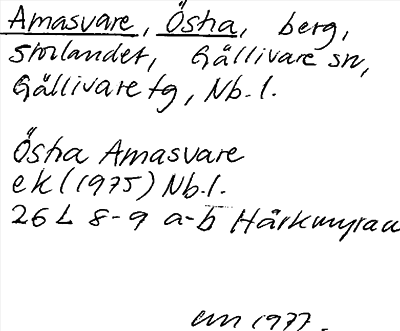 Amasvare, Östra, berg,
storlandet, Gällivare sn,
Gällivare tg, Nb. l.
Östra Amasvare
ek (1975) Nb. l.
26 L 8-9 a-b Hårkmyran
1977.